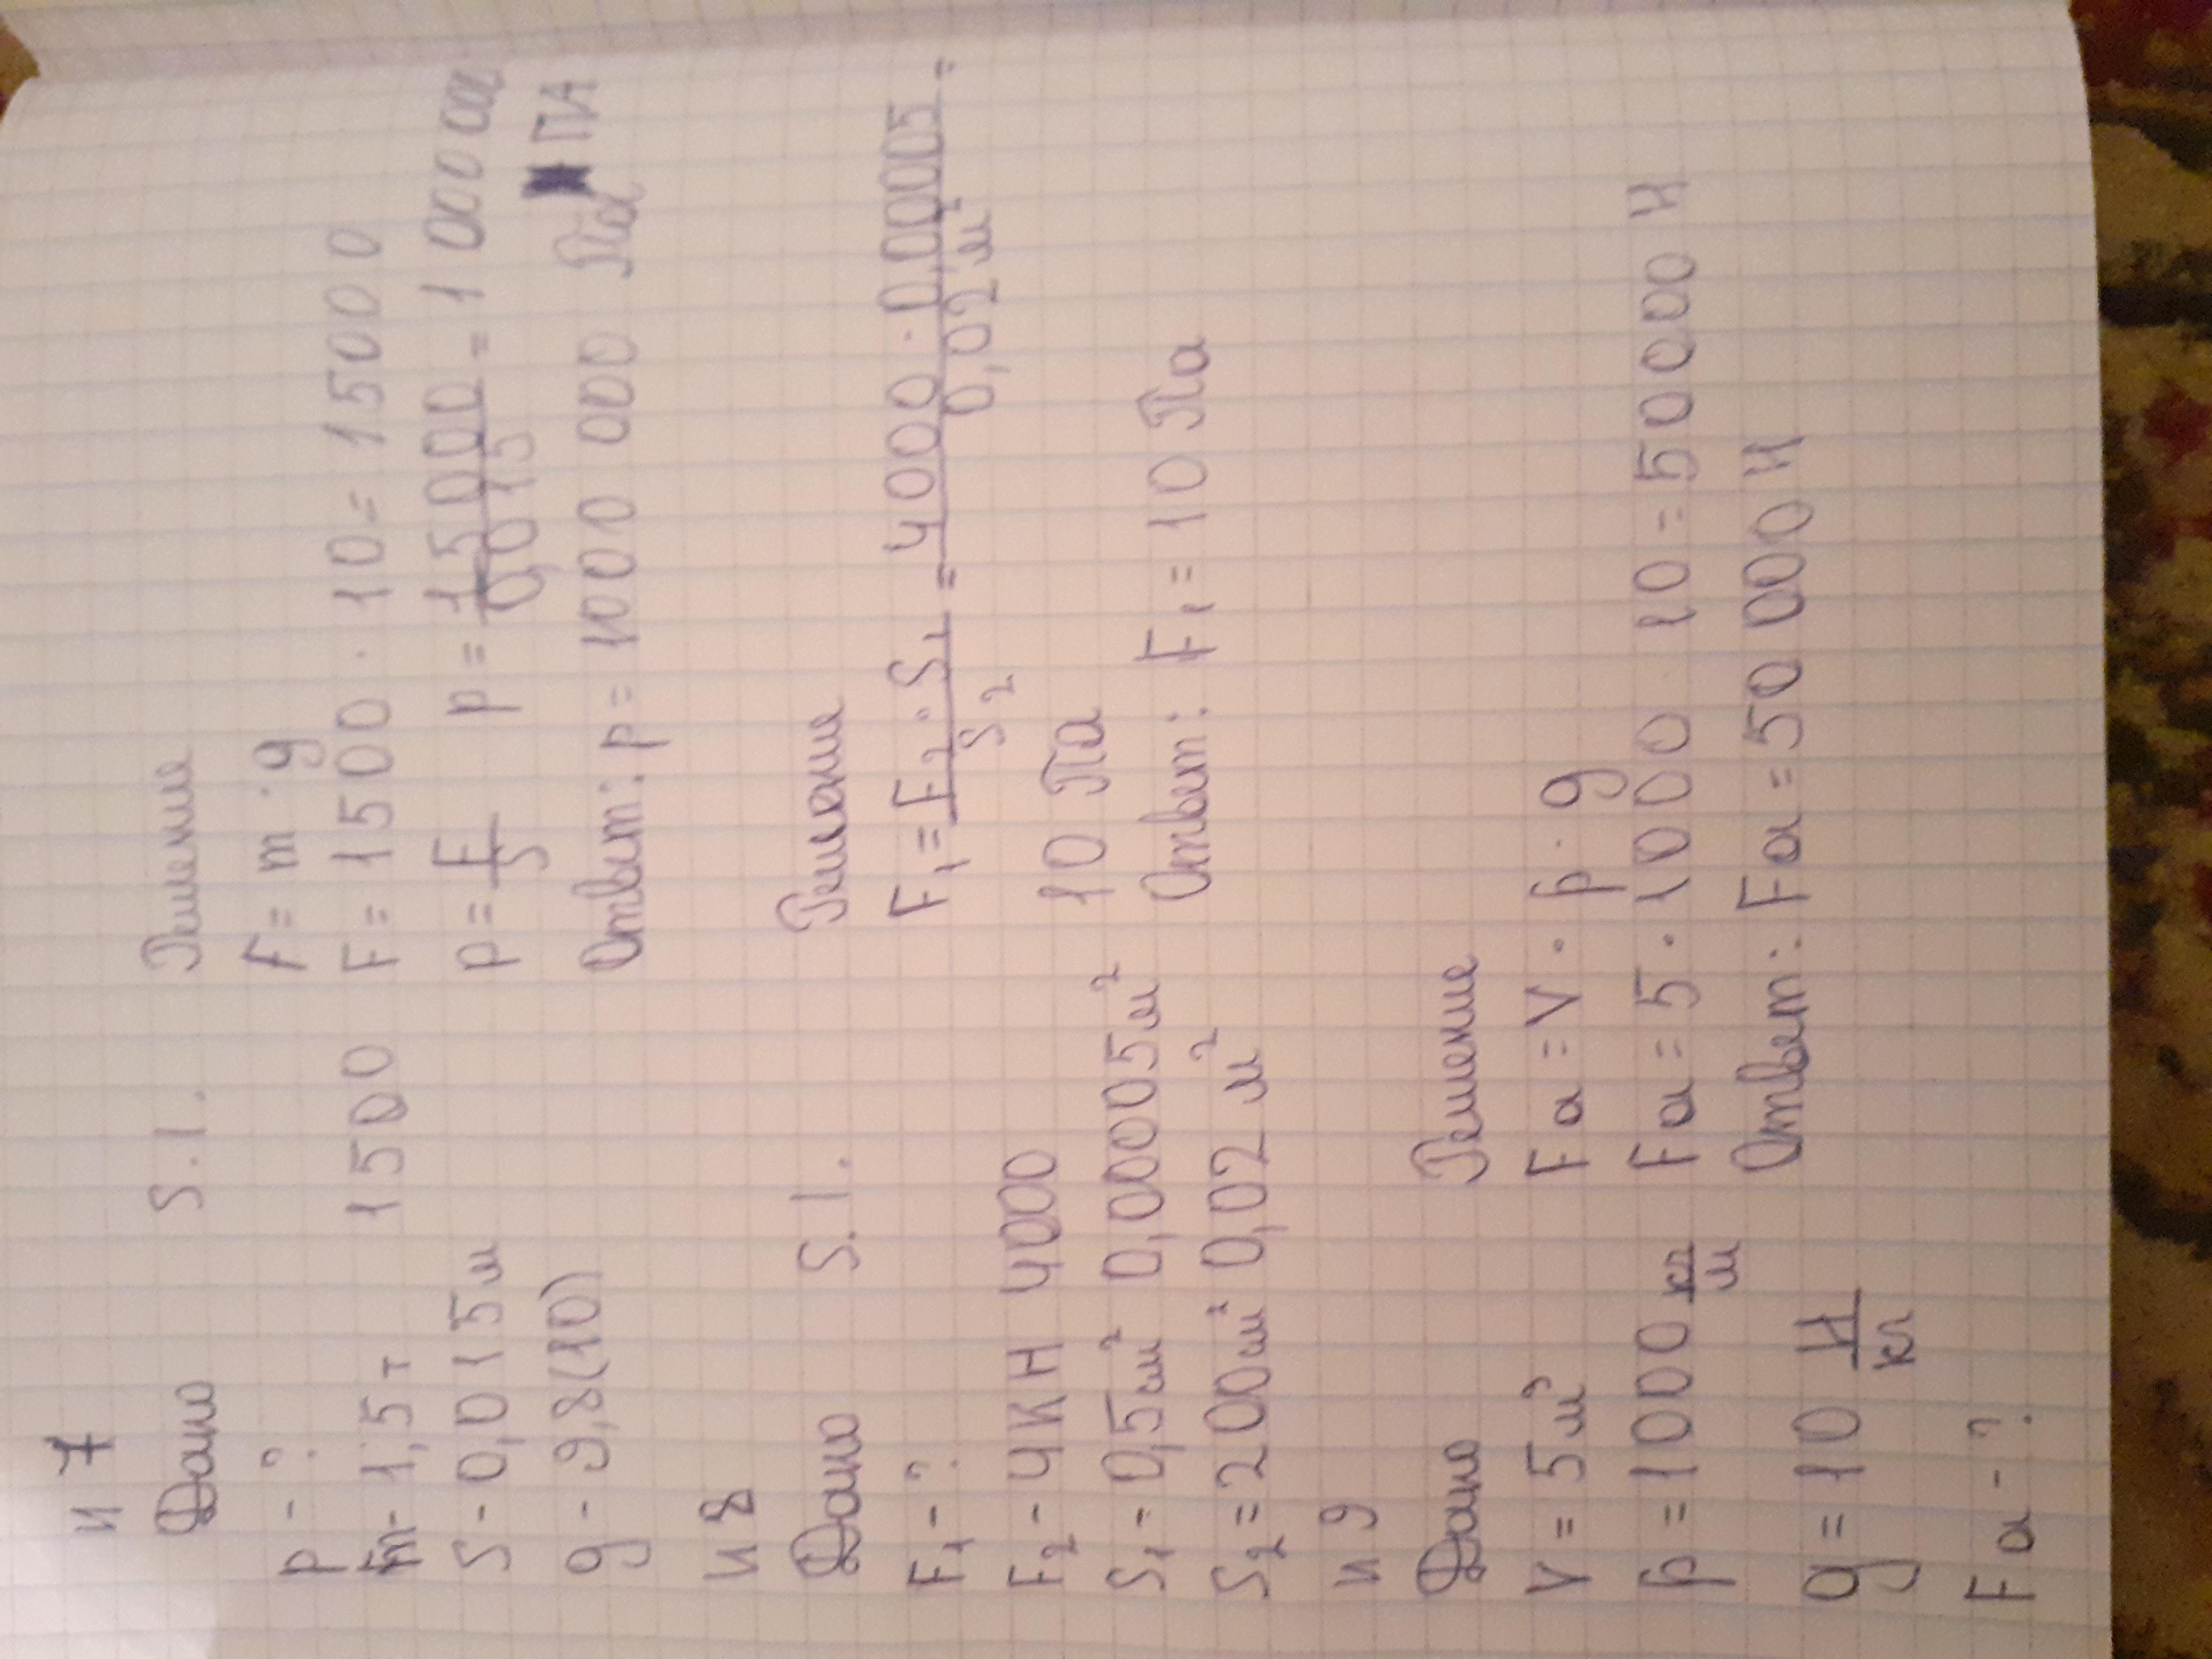 н 7
Дано S.I. Решение
p - ? F = m · g
m - 1,5 т 1500 F = 1500 · 10 = 15000
S - 0,015 м p = F/S p = 15000/0,015 = 1 000 000
ПА
g - 9,8(10) Ответ: p = 1000 000 Па
н 8
Дано S.I. Решение
F₁ - ? F₁ = F₂ · S₁/S₂ = 4000 · 0,00005/0,02 м² =
F₂ - 4 КН 4000 10 Па
S₁ = 0,5 см² 0,00005 м² Ответ: F₁ = 10 Па
S₂ = 200 см² 0,02 м²
н 9
Дано Решение
V = 5 м³ Fa = V · p · g
p = 1000 кг/м Fa = 5 · 1000 · 10 = 50000 Н
g = 10 Н/кг Ответ: Fa = 50 000 Н
Fa - ?